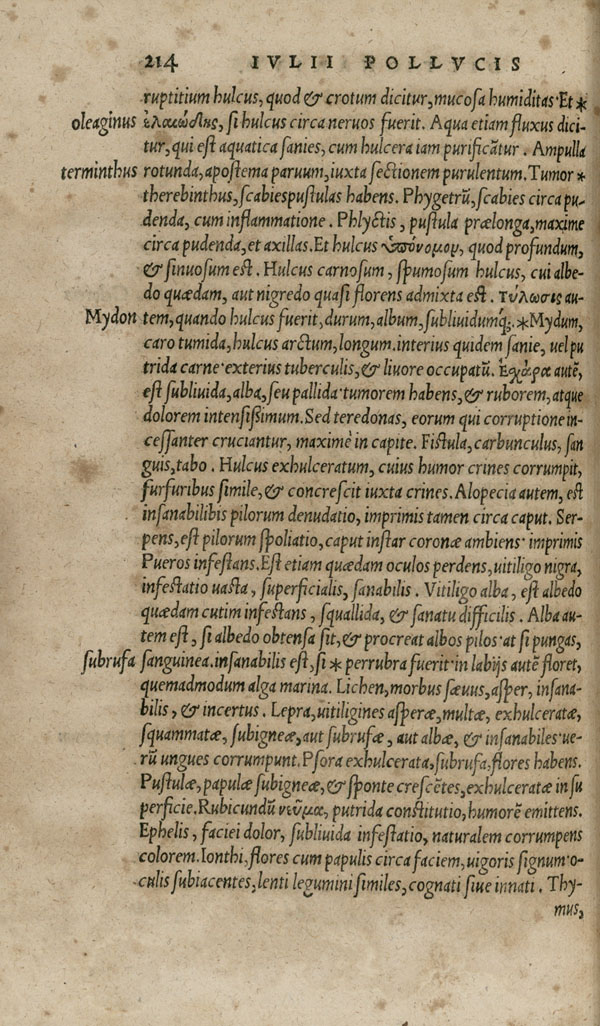 214 IVLII POLLVCIS
ruptitium hulcus, quod & crotum dicitur, mucosa humiditas. Et *
oleaginus ἐλαιώδης, si hulcus circa neruos fuerit. Aqua etiam fluxus dici-
tur, qui est aquatica sanies, cum hulcera iam purificātur. Ampulla
terminthus rotunda, apostema paruum, iuxta sectionem purulentum. Tumor *
therebinthus, scabiespustulas habens. Phygetrū, scabies circa pu-
denda, cum inflammatione. Phlyctis, pustula prælonga, maxime
circa pudenda, et axillas. Et hulcus ὑπόνομον, quod profundum,
& sinuosum est. Hulcus carnosum, spumosum hulcus, cui albe-
do quædam, aut nigredo quasi florens admixta est. τύλωσις au-
Mydon tem, quando hulcus fuerit, durum, album, subliuidumq;. *Mydum,
caro tumida, hulcus arctum, longum. interius quidem sanie, uel pu
trida carne. exterius tuberculis, & liuore occupatū. Ἐσχάρα autē,
est subliuida, alba, seu pallida. tumorem habens, & ruborem, atque
dolorem intensißimum. Sed teredonas, eorum qui corruptione in-
cessanter cruciantur, maximè in capite. Fistula, carbunculus, san
guis, tabo. Hulcus exhulceratum, cuius humor crines corrumpit,
furfuribus simile, & concrescit iuxta crines. Alopecia autem, est
insanabilibis pilorum denudatio, imprimis tamen circa caput. Ser-
pens, est pilorum spoliatio, caput instar coronæ ambiens. imprimis
Pueros infestans. Est etiam quædam oculos perdens, uitiligo nigra,
infestatio uasta, superficialis, sanabilis. Vitiligo alba, est albedo
quædam cutim infestans, squallida, & sanatu difficilis. Alba au-
tem est, si albedo obtensa sit, & procreat albos pilos. at si pungas,
subrufa sanguinea. insanabilis est, si * perrubra fuerit. in labijs autē floret,
quemadmodum alga marina. Lichen, morbus sæuus, asper, insana-
bilis, & incertus. Lepra, uitiligines asperæ, multæ, exhulceratæ,
squammatæ, subigneæ, aut subrufæ, aut albæ, & insanabiles. ue-
rū ungues corrumpunt. Psora exhulcerata, subrufa, flores habens.
Pustulæ, papulæ subigneæ, & sponte crescētes, exhulceratæ in su
perficie. Rubicundū πνεῦμα, putrida constitutio, humorē emittens.
Ephelis, faciei dolor, subliuida infestatio, naturalem corrumpens
colorem. Ionthi, flores cum papulis circa faciem, uigoris signum. o-
culis subiacentes, lenti legumini similes, cognati siue innati. Thy-
mus,